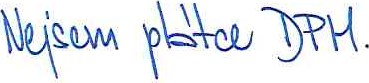 Nejsem plátce DPH.